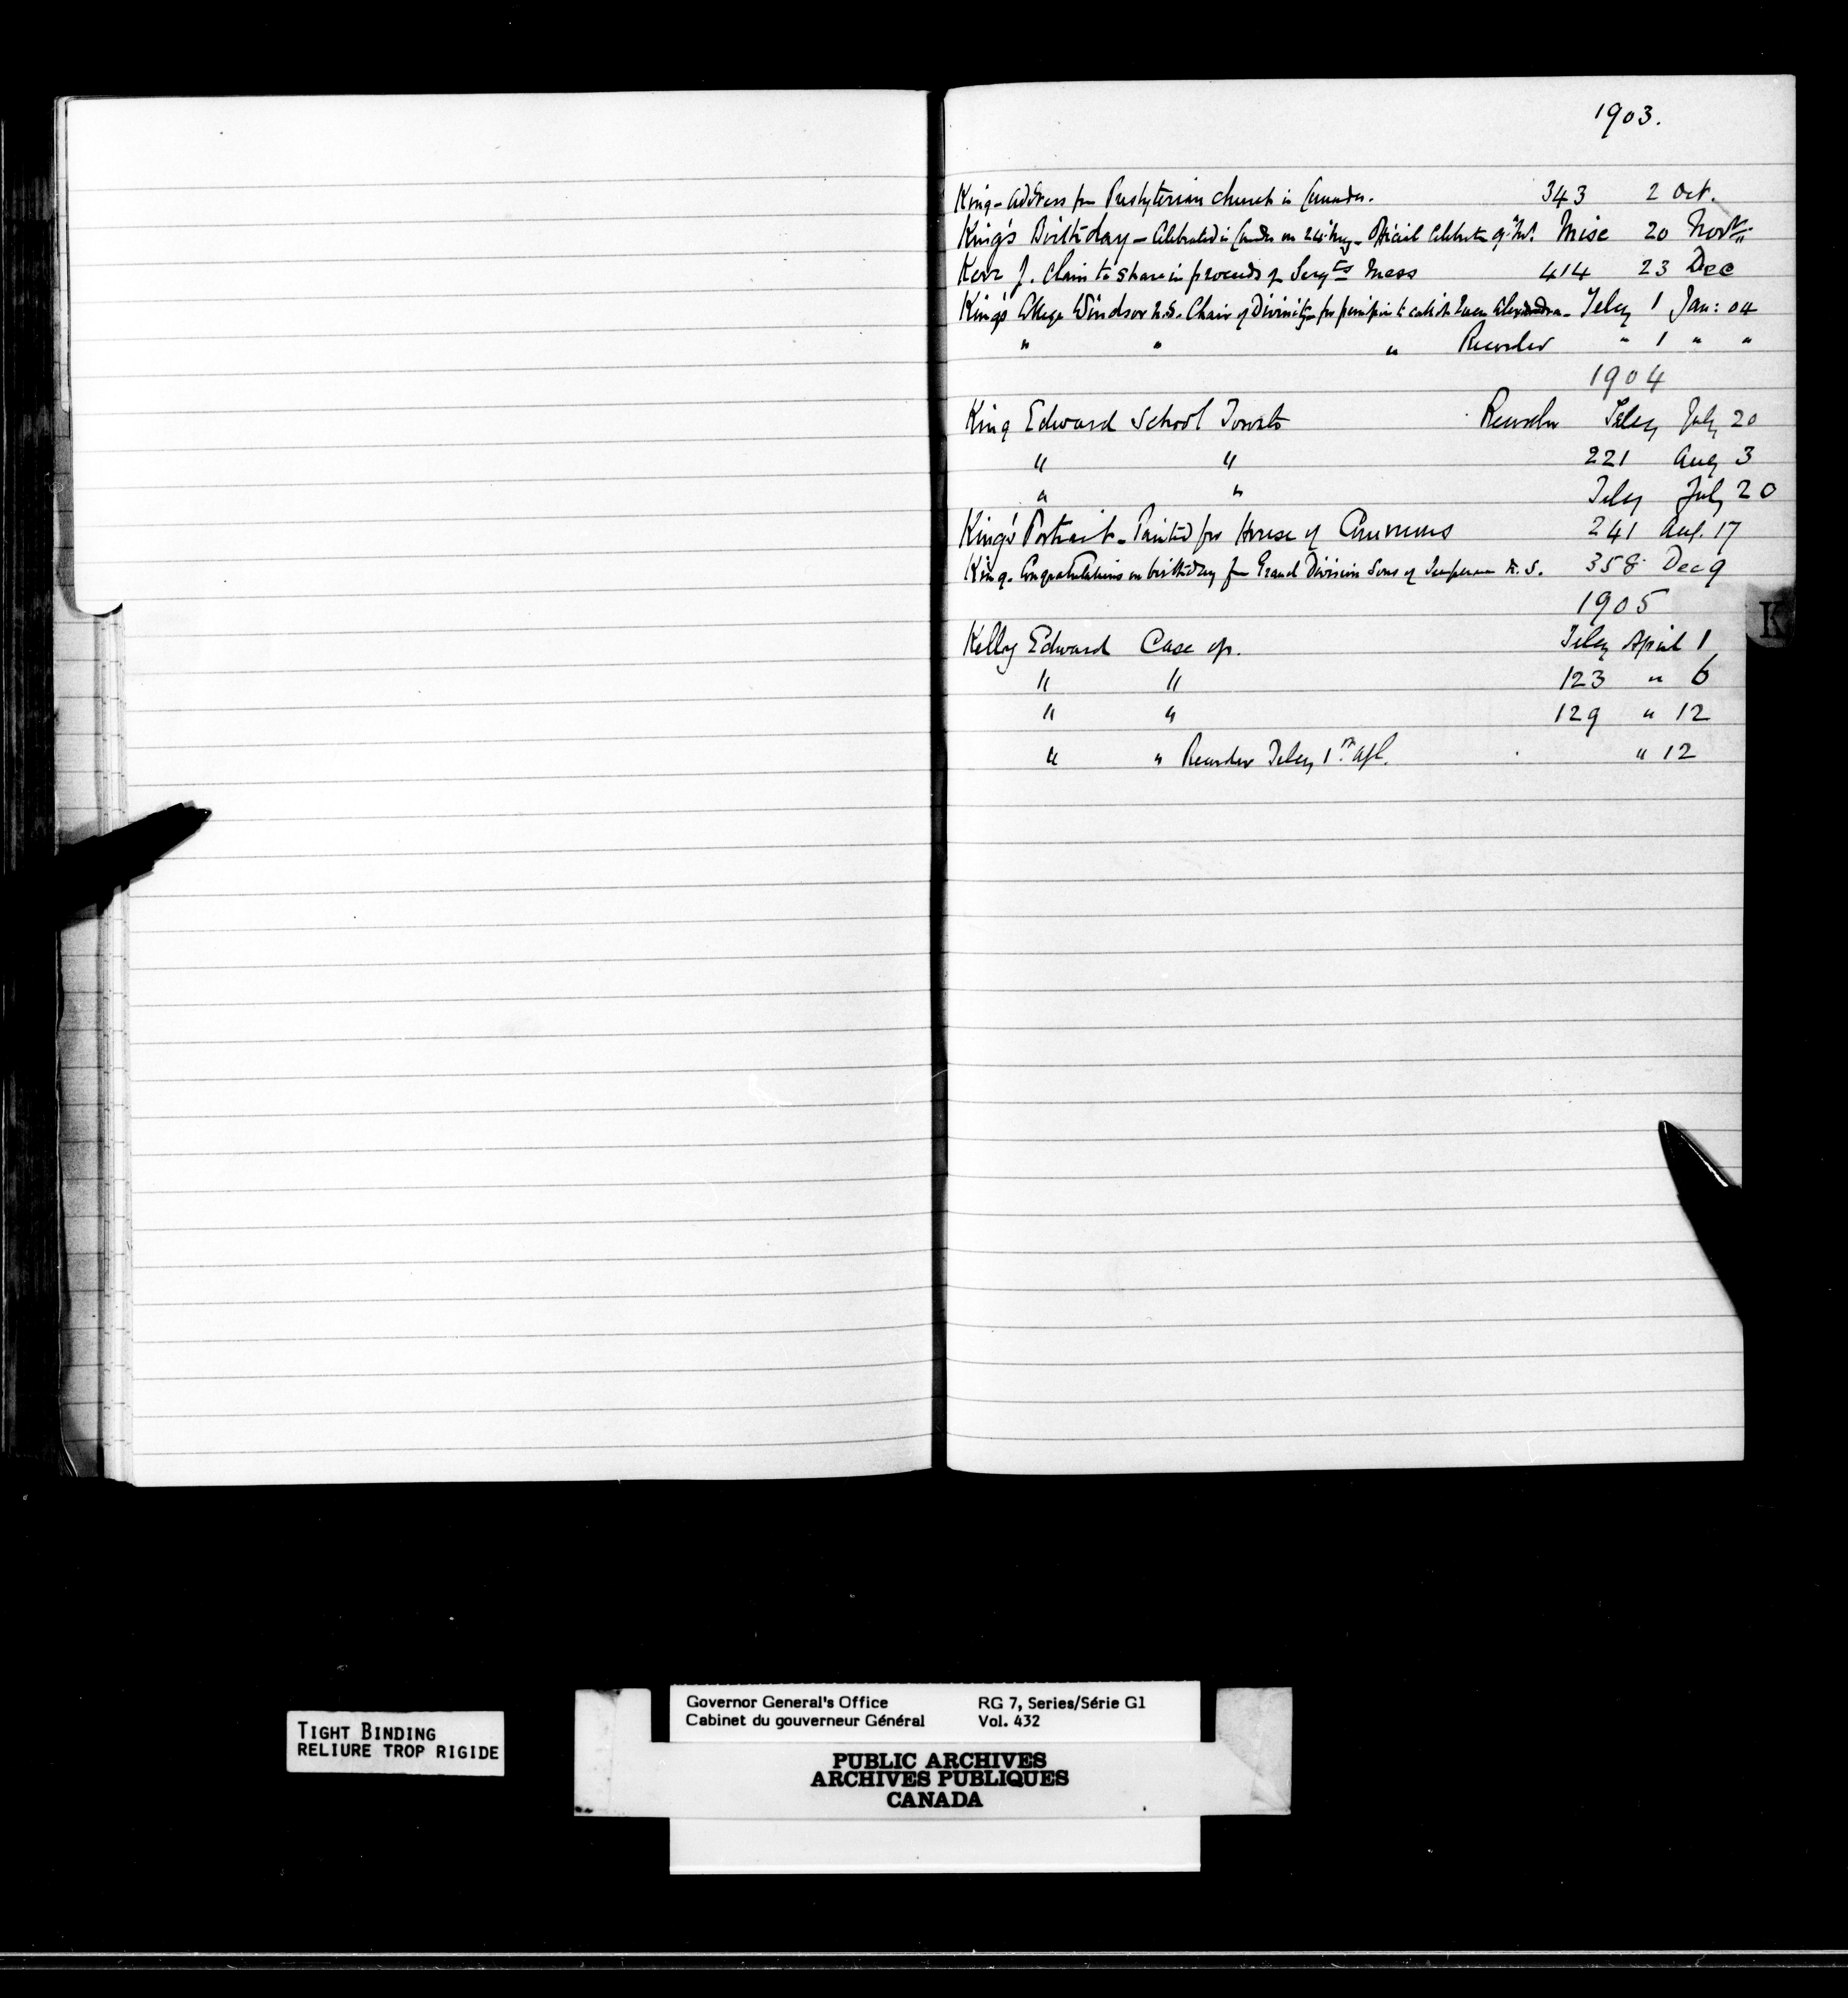 1903.
King - Address fm Presbyterian church in Canada. 343 2 Oct.
King's Birthday - Celebrated in Canada on 24th May - Official Celebratn 9th Novr. Misc 20 Novr.
Kerr J. Claim to share in proceeds of Sergts Mess 414 23 Dec
King's College Windsor N.S. Chair of Divinity - for permission to call it Queen Alexandra - Teleg 1 Jan: 04
" " " Recorder " 1 " "
1904
King Edward School Toronto Teleg July 20
" " 221 Aug 3
" " Teleg July 20
King's Portrait - Painted for House of Commons 241 Aug. 17
King - Congratulations on birthday fm Grand Division Sons of Temperance N.S. 358 Dec 9
1905
K
Kelly Edward Case of. Teleg April 1
" " 123 " 6
" " 129 " 12
" " Teleg 1st Apl. " 12
TIGHT BINDING
RELIURE TROP RIGIDE
Governor General's Office RG 7, Series/Série G1
Cabinet du gouverneur Général Vol. 432
PUBLIC ARCHIVES
ARCHIVES PUBLIQUES
CANADA